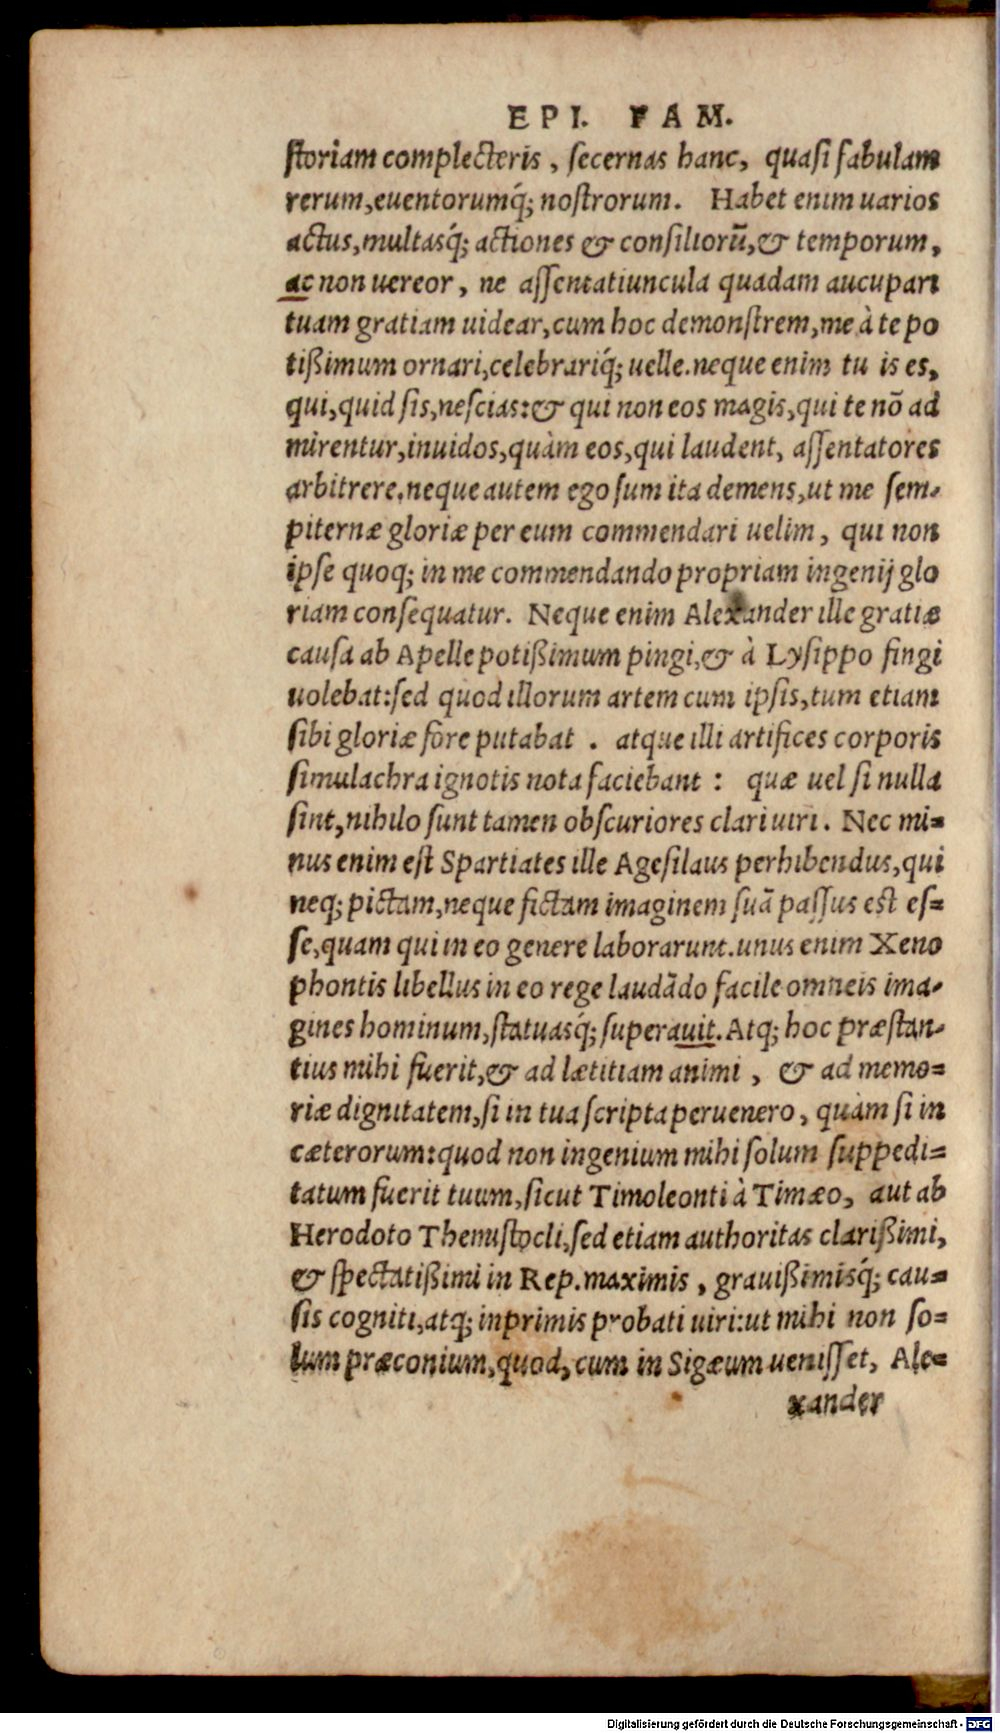 EPI. FAM.
ſtoriam complecteris, ſecernas hanc, quaſi fabulam
rerum,euentorumq́; noſtrorum. Habet enim uarios
actus,multasq́; actiones & conſilioru̅,& temporum,
ac non uereor, ne aſſentatiuncula quadam aucupari
tuam gratiam uidear,cum hoc demonſtrem,me à te po
tißimum ornari,celebrariq́; uelle.neque enim tu is es,
qui,quid ſis,neſcias:& qui non eos magis,qui te nō ad
mirentur,inuidos,quàm eos,qui laudent, aſſentatores
arbitrere.neque autem ego ſum ita demens,ut me ſem-
piternæ gloriæ per eum commendari uelim, qui non
ipſe quoq; in me commendando propriam ingenij glo
riam conſequatur. Neque enim Alexander ille gratiæ
cauſa ab Apelle potißimum pingi,& à Lyſippo fingi
uolebat:ſed quod illorum artem cum ipſis,tum etiam
ſibi gloriæ fore putabat . atque illi artifices corporis
ſimulachra ignotis nota faciebant : quæ uel ſi nulla
ſint,nihilo ſunt tamen obſcuriores clari uiri. Nec mi=
nus enim eſt Spartiates ille Ageſilaus perhibendus,qui
neq; pictam,neque fictam imaginem ſuā paſſus eſt eſ=
ſe,quam qui in eo genere laborarunt.unus enim Xeno
phontis libellus in eo rege laudādo facile omneis ima-
gines hominum,ſtatuasq́; ſuperauit.Atq; hoc præſtan-
tius mihi fuerit,& ad lætitiam animi, & ad memo=
riæ dignitatem,ſi in tua ſcripta peruenero, quàm ſi in
cæterorum:quod non ingenium mihi ſolum ſuppedi=
tatum fuerit tuum,ſicut Timoleonti à Timæo, aut ab
Herodoto Themiſtocli,ſed etiam authoritas clarißimi,
& ſpectatißimi in Rep.maximis, grauißimisq́; cau=
ſis cogniti,atq; inprimis probati uiri:ut mihi non ſo=
lum præconium,quod,cum in Sigæum ueniſſet, Ale=
xander
Digitalisierung gefördert durch die Deutsche Forschungsgemeinschaft - DFG